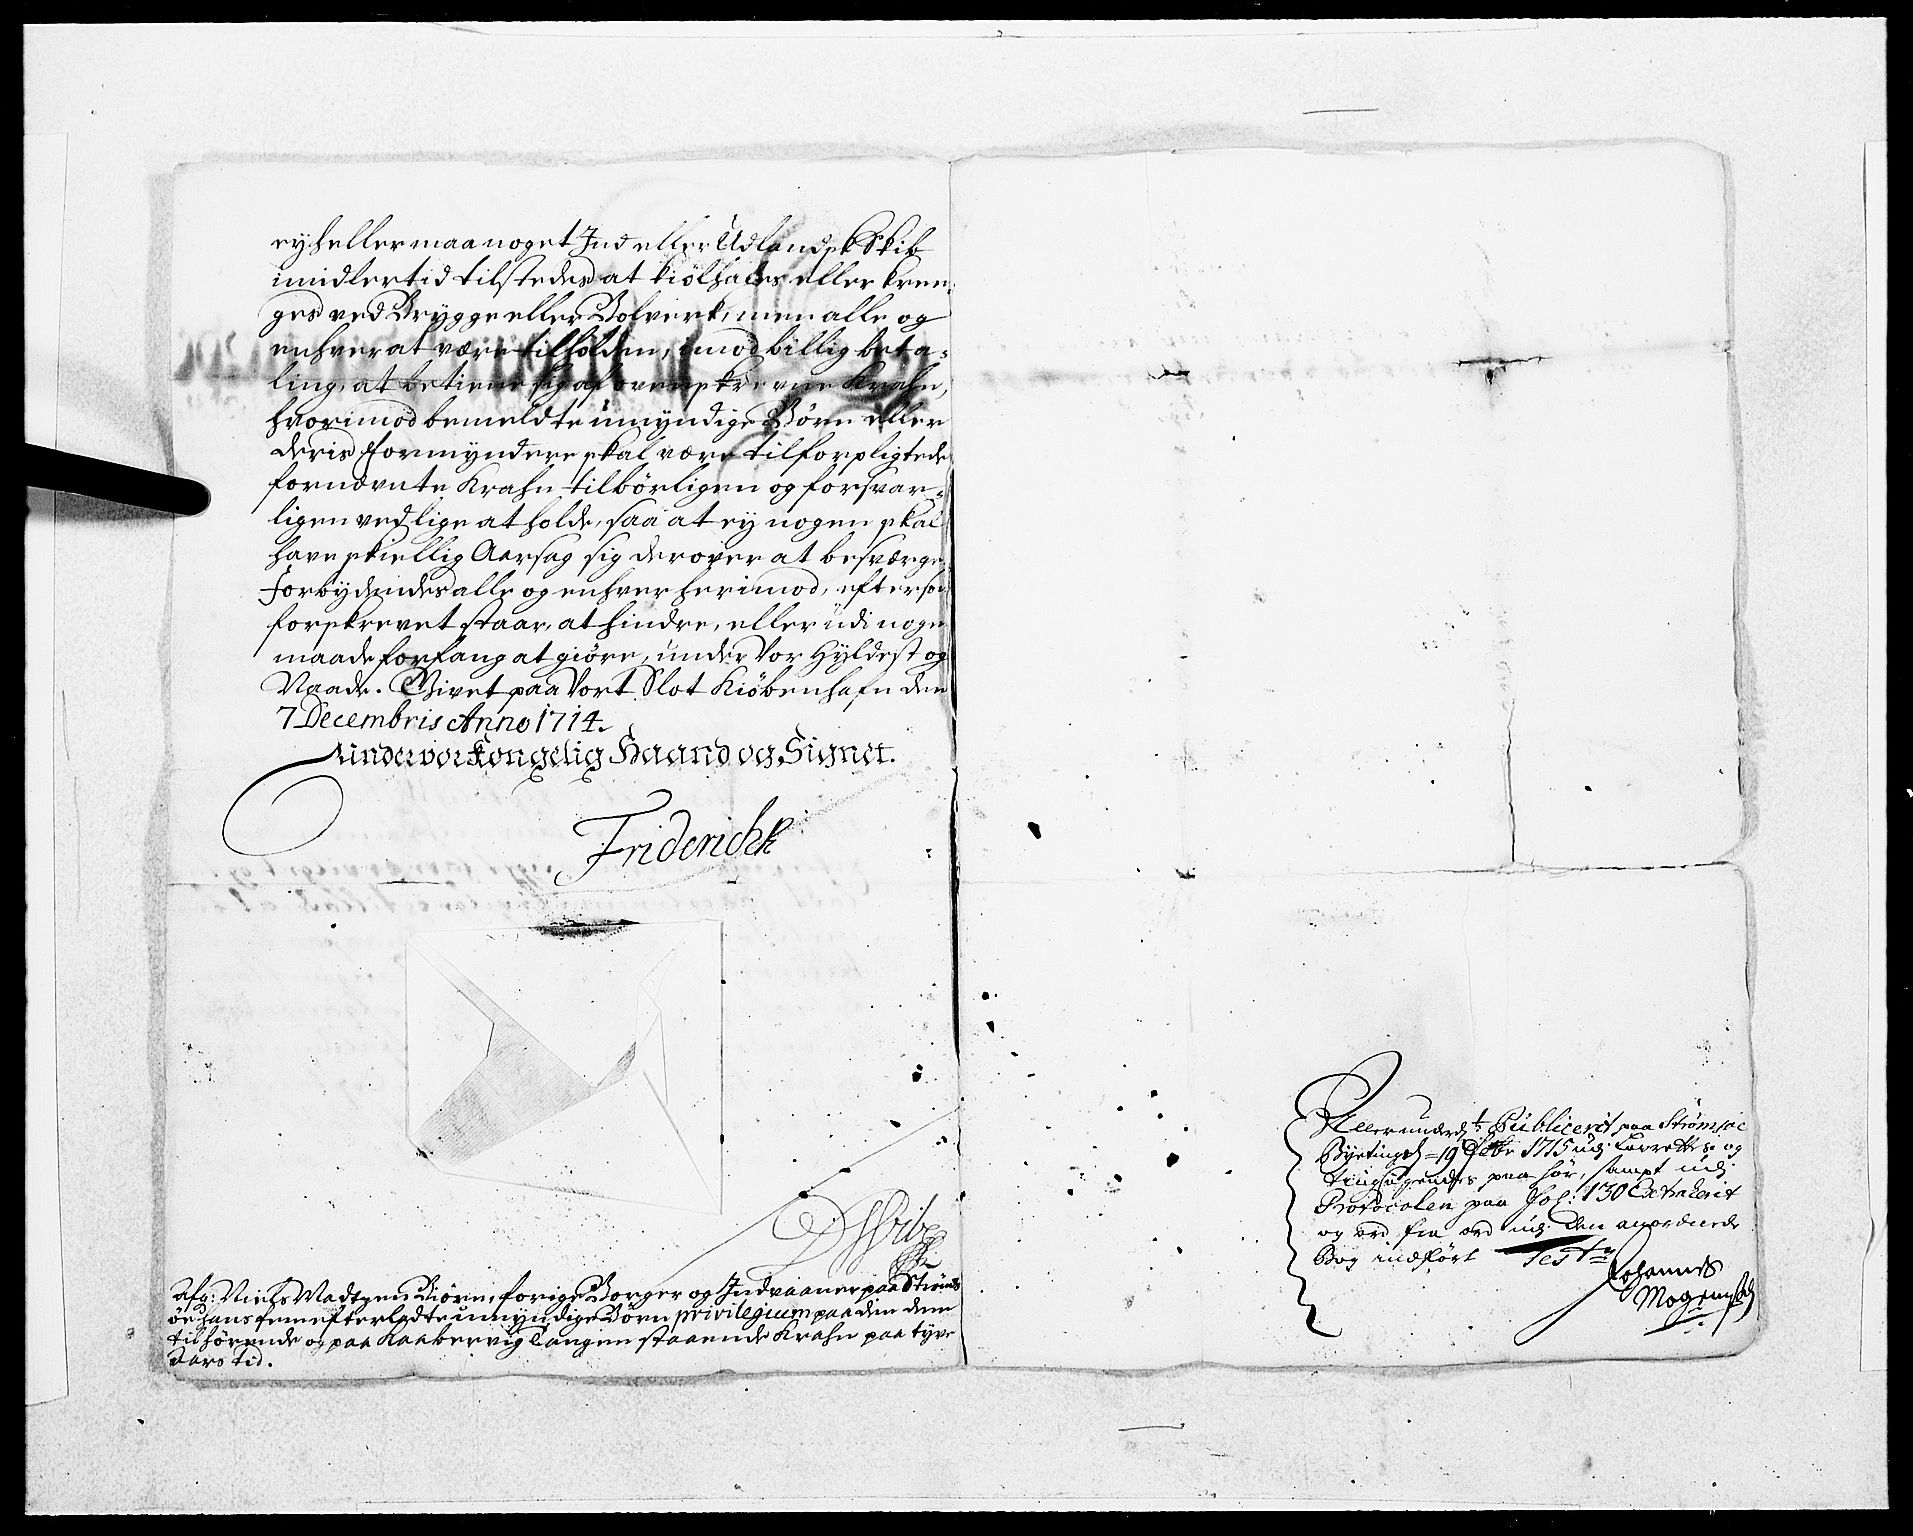 ey heller maa noget Ind eller Udlandsk Skib
imidlertid tilstedes at kiølhales eller kren-
ges ved Brygge eller Bolverk, men alle og
enhver at være tilholden, imod billig beta-
ling, at betiene sig af ovenskrevne Krahn,
hvorimod bemeldte umyndige Børn eller
deris Formyndere skal være tilforpligtede
fornævnte Krahn tilbørligen og forsvar-
ligen ved lige at holde, saa at ey nogen skal
have skiellig Aarsag sig derover at besværge
Forbydendes alle og enhver herimod, eftersom
forskrevet staar, at hindre, eller udi noge
maade forfang at giøre, under Vor Hyldest og
Naade. Givet paa Vort Slot Kiøbenhafn den
7 Decembris Anno 1714.
under vor Kongelig Haand og Signet.
Friderich R
afg: Niels Madtzen Biørn, forige Borger og Indvaaner paa Strøms
øe hans fem efterladte umyndige Børn privilegium paa den dem
tilhørende og paa Kaaberviglangen staaende Krahn paa tyve
Aars tid.
Publicerit paa Strømsøe
Byeting d= 19 1715 udj Lavrettes og
paa hør, sampt udj
Protocolen paa Fol: 130 Extraherit
og ord fra ord udj den anordnede
Bog indført Test
Johannes
Mogensen